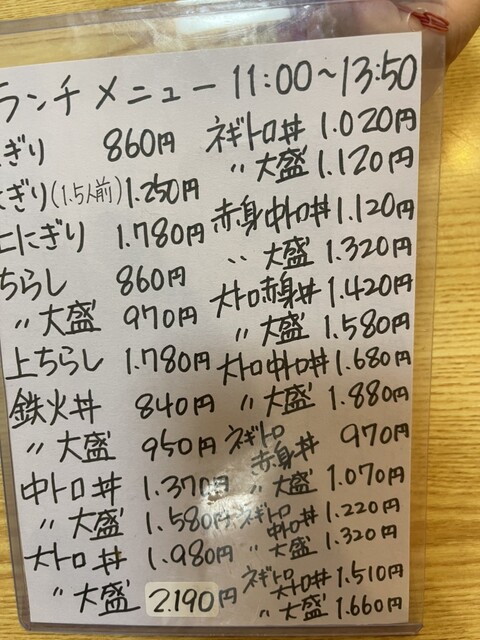 ランチメニュー 11:00～13:50
にぎり 860円
にぎり(1.5人前) 1.250円
上にぎり 1.780円
ちらし 860円
〃大盛 970円
上ちらし 1.780円
鉄火丼 840円
〃大盛 950円
中トロ丼 1.370円
〃大盛 1.580円
大トロ丼 1.980円
〃大盛 2.190円
ネギトロ丼 1.020円
〃大盛 1.120円
赤身中トロ丼 1.120円
〃大盛 1.320円
大トロ赤身丼 1.420円
〃大盛 1.580円
大トロ中トロ丼 1.680円
〃大盛 1.880円
ネギトロ
赤身丼 970円
〃大盛 1.070円
ネギトロ
中トロ丼 1.220円
〃大盛 1.320円
ネギトロ
大トロ丼 1.510円
〃大盛 1.660円